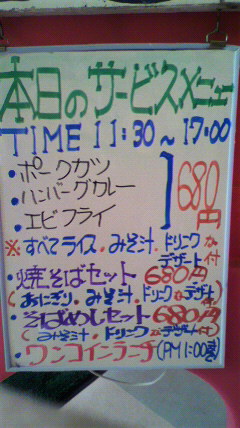 本日のサービスメニュー
TIME 11:30～17:00
・ポークカツ
・ハンバーグカレー
・エビフライ
680円
※すべてライス・みそ汁・ドリンク・デザート付
・焼そばセット 680円
(おにぎり・みそ汁・ドリンク・デザート付)
・そばめしセット 680円
(みそ汁・ドリンク・デザート付)
・ワンコインランチ(PM1:00迄)